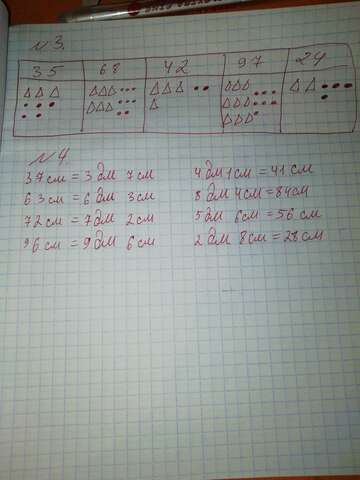 №3.
35 68 42 97 24
№4.
37 см = 3 дм 7 см 4 дм 1 см = 41 см
63 см = 6 дм 3 см 8 дм 4 см = 84 см
72 см = 7 дм 2 см 5 дм 6 см = 56 см
96 см = 9 дм 6 см 2 дм 8 см = 28 см